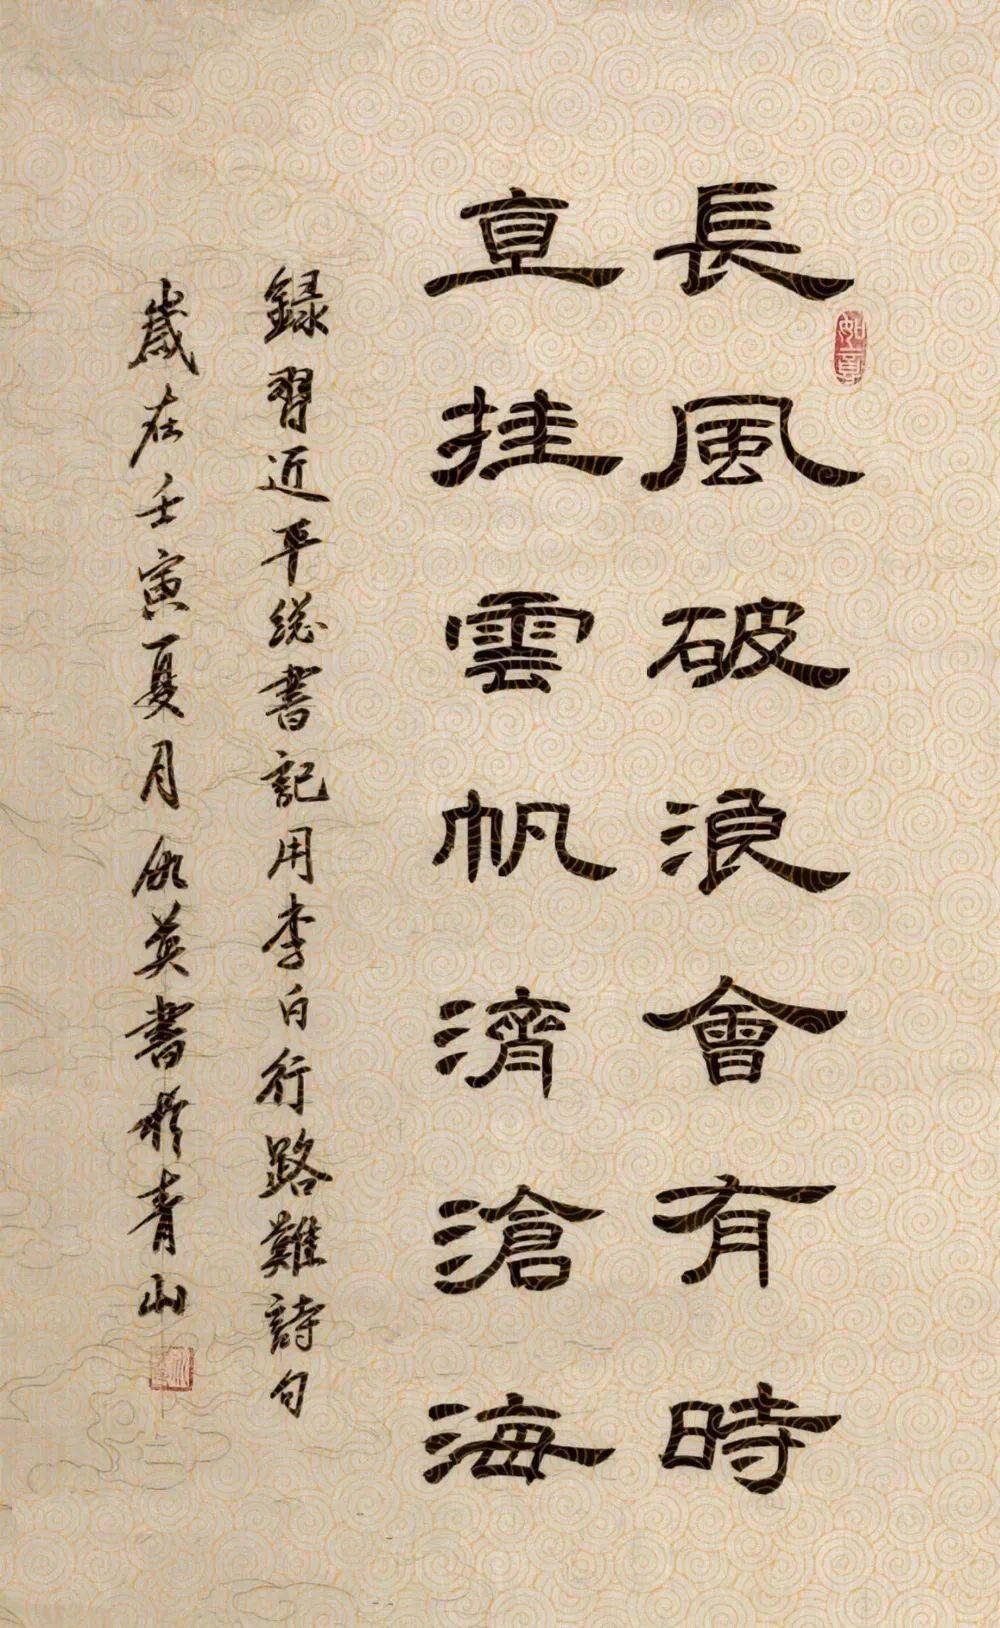 長風破浪會有時
直挂雲帆濟滄海
録習近平總書記用李白行路難詩句
歲在壬寅夏月英書於青山